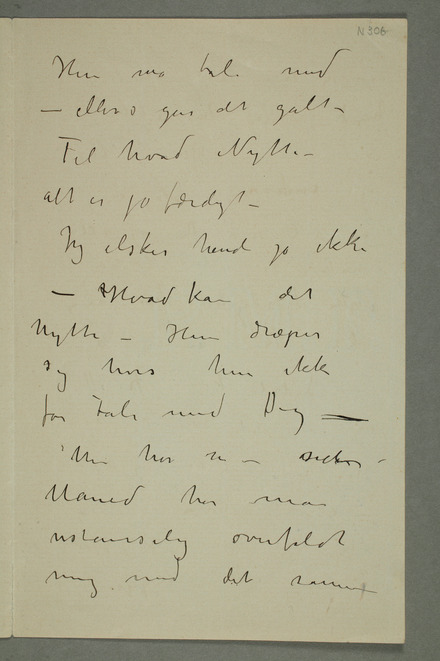 N 306
Hun må tale med
— ellers går det galt –
Til hvad Nytte –
alt er jo færdigt –
Jeg elsker hende jo ikke
– Hvad kan det
Nytte – Hun dræper
sig hvis hun ikke
får Tale med Dig —
Nu har
Måned har man
ustanselig overfaldt
mig med det samme